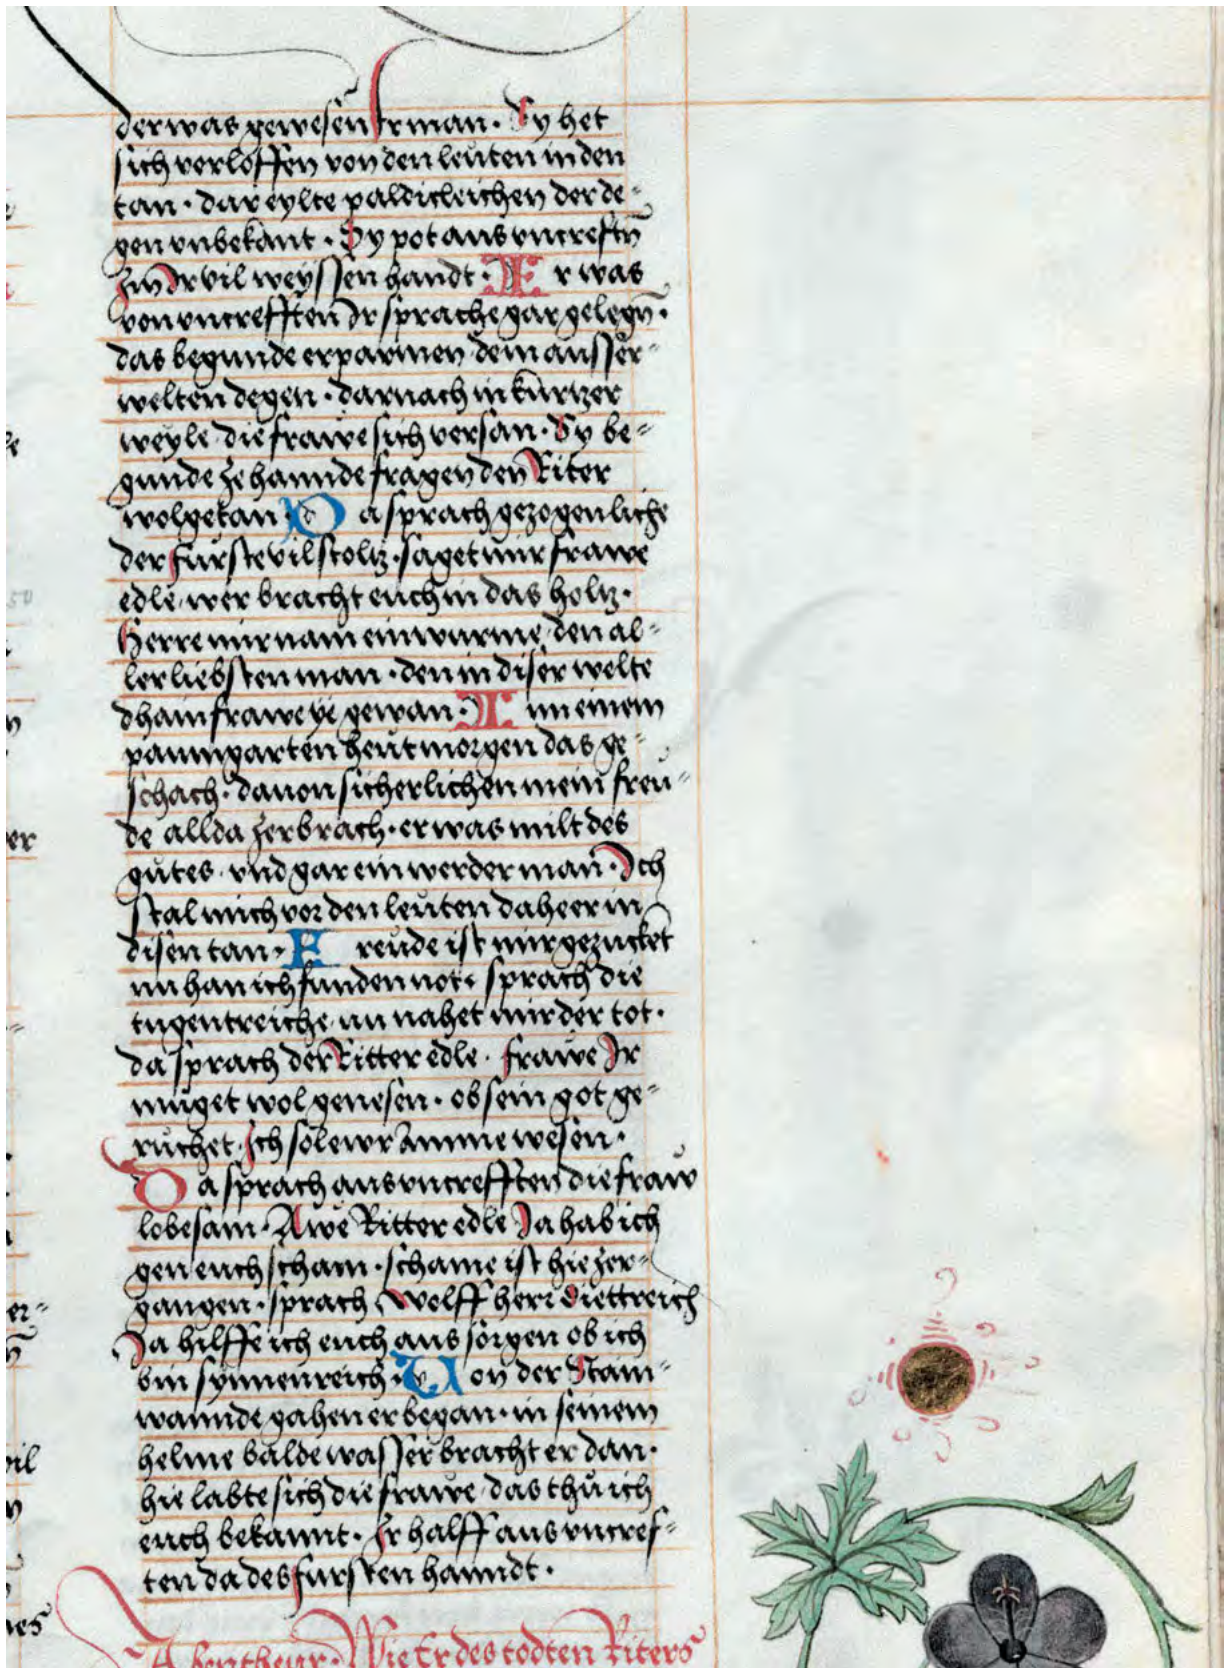 der was gewesen Ir man. Sy het
sich verloffen von den leuten in den
tan. dar eylte paldicleichen der de-
gen vnbekant. Sy pot aus vncrefftn̄
Im Ir vil weyssen handt. Er was
von vncrefften Ir sprache gar gelegn̄.
das begunde erparmen dem ausser-
welten degen. darnach in kurtzer
weyle die frawe sich versan. Sy be-
gunde ze hannde fragen den Riter
wolgetan. Da sprach gezogenliche
der furste vil stoltz. saget mir frawe
edle, wer bracht euch in das holtz.
Herre mir nam ein wurme, den al-
ler liebsten man. den in diser welte
dhain frawe ye gewan. In einem
paumgarten heut morgen das ge-
schach. dauon sicherlichen mein freu-
de allda zerbrach. er was milt des
gůtes. vnd gar ein werder man. Ich
stal mich vor den leuten da heer in
disen tan. Freude ist mir gezucket
nu han ich funden not. sprach die
tugentreiche. nu nahet mir der tot.
da sprach der Ritter edle. frawe Ir
muget wol genesen. ob sein got ge-
růchet. Ich sol ewr Amme wesen.
Da sprach aus vncrefften die fraw
lobesam. Awe Ritter edle Ja hab ich
gen euch scham. schame ist hie zer-
gangen. sprach Wolff herr Diettreich
Ja hilffe ich euch aus sorgen ob ich
bin synnenreich. Von der Stain-
wannde gahen er began. in seinem
helme balde wasser bracht er dan.
hie labte sich die frawe. das thů ich
euch bekannt. Ir halff aus vncref-
ten da des fursten hanndt.
Abentheur. Wie Er des todten Riters